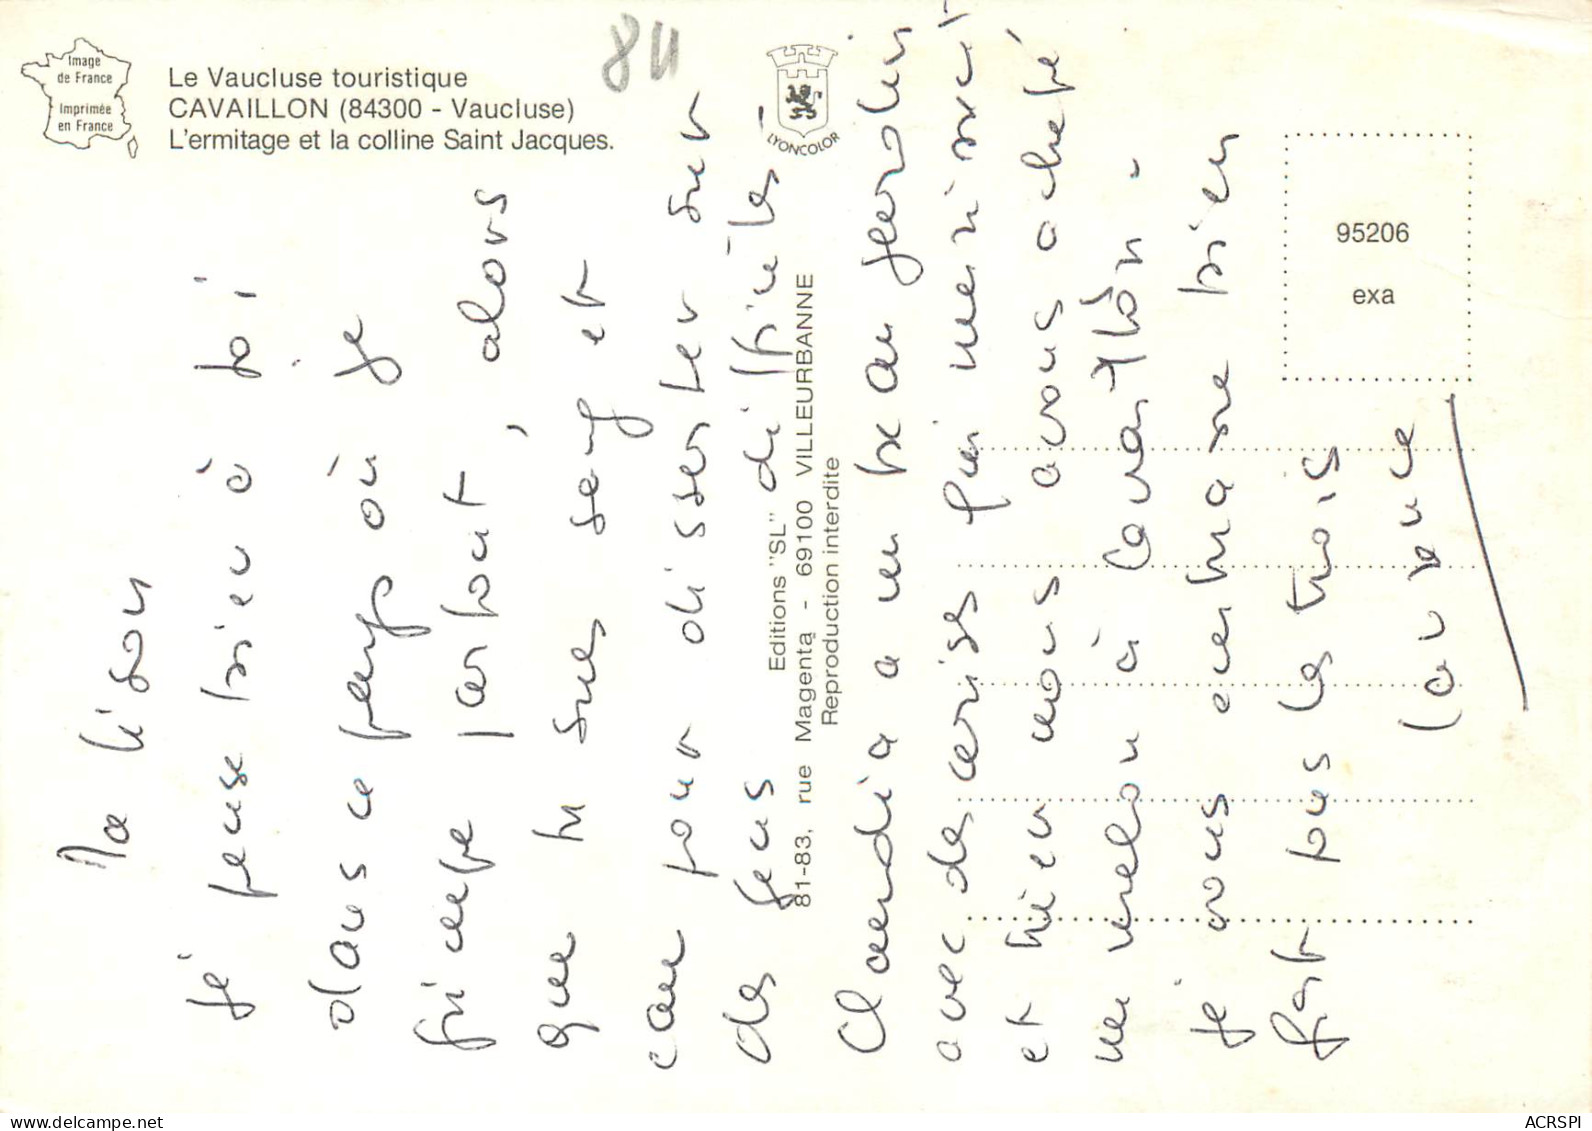 Image
de France
Imprimée
en France
Le Vaucluse touristique
CAVAILLON (84300 - Vaucluse)
L'ermitage et la colline Saint Jacques.
84
LYONCOLOR
95206
exa
Editions "SL"
81-83, rue Magenta - 69100 VILLEURBANNE
Reproduction interdite
Ma lison
je pense bien à toi
dans ce pays où je
grimpe partout, alors
que tu sues sang et
eau pour disserter sur
des gens
Claudia a un beau jardin
avec des cerises qui
et bien nous avons acheté
un melon à Cavaillon.
je vous embrasse bien
fort tous les trois
Laurence